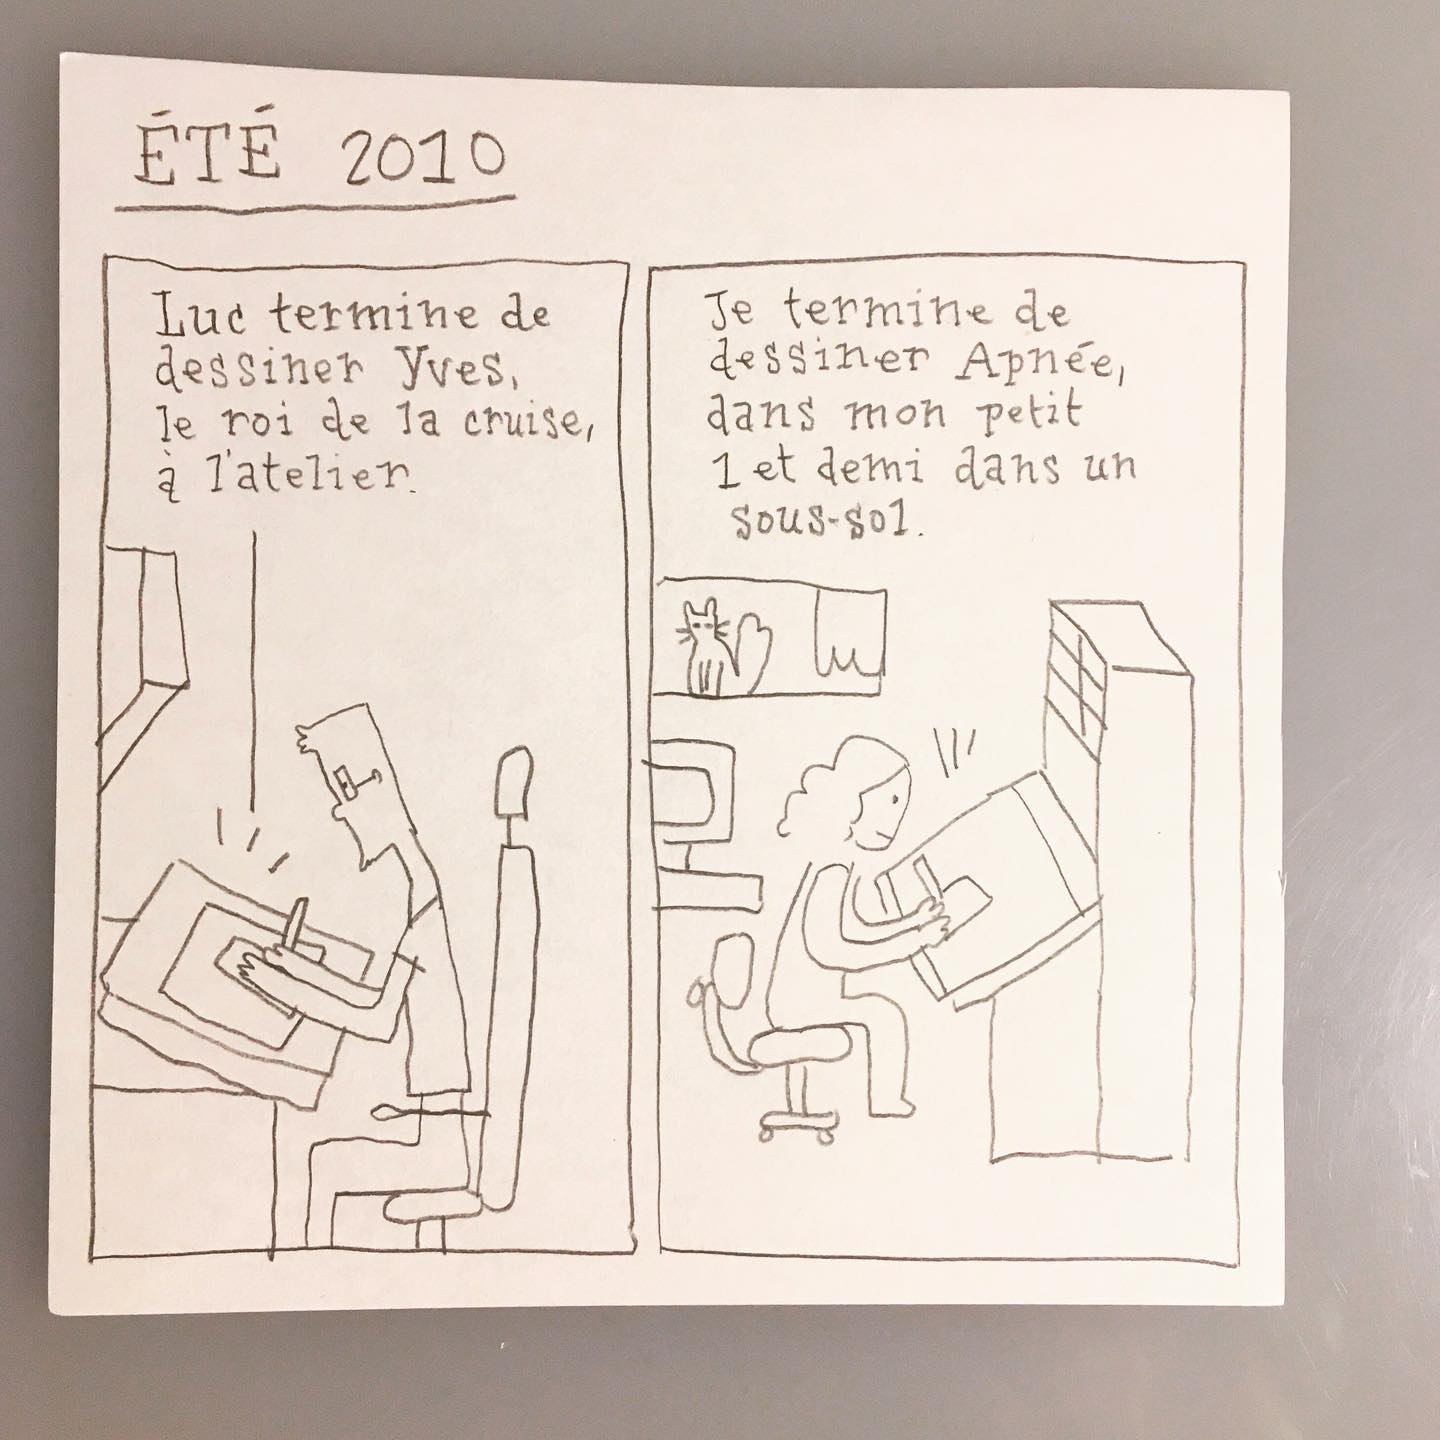 ÉTÉ 2010
Luc termine de
dessiner Yves,
le roi de la cruise,
à l'atelier.
Je termine de
dessiner Apnée,
dans mon petit
1 et demi dans un
sous-sol.